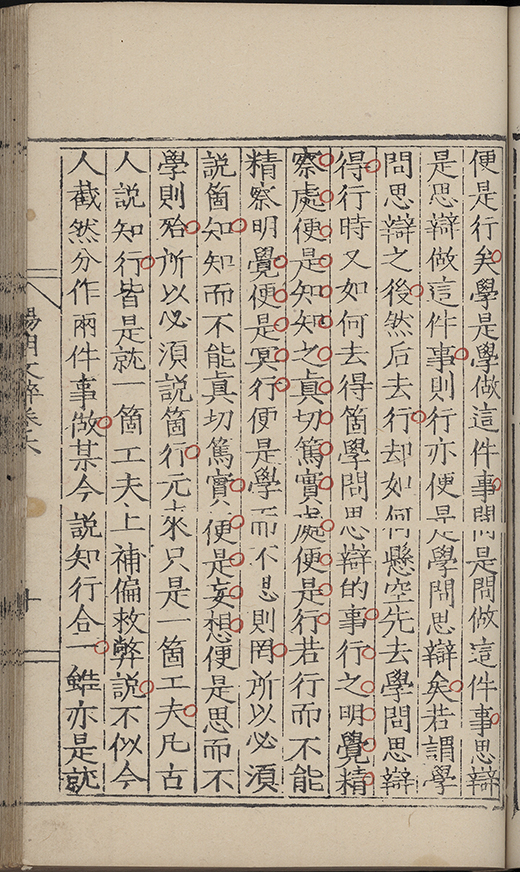 便是行矣學是學做這件事問是問做這件事思辯
是思辯做這件事則行亦便是學問思辯矣若謂學
問思辯之後然后去行却如何懸空先去學問思辯
得行時又如何去得箇學問思辯的事行之明覺精
察處便是知知之真切篤實處便是行若行而不能
精察明覺便是冥行便是學而不思則罔所以必須
說箇知知而不能真切篤實便是妄想便是思而不
學則殆所以必須說箇行元來只是一箇工夫凡古
人說知行皆是就一箇工夫上補偏救弊說不似今
人截然分作兩件事做某今說知行合一雖亦是就
陽明文粹卷六
十